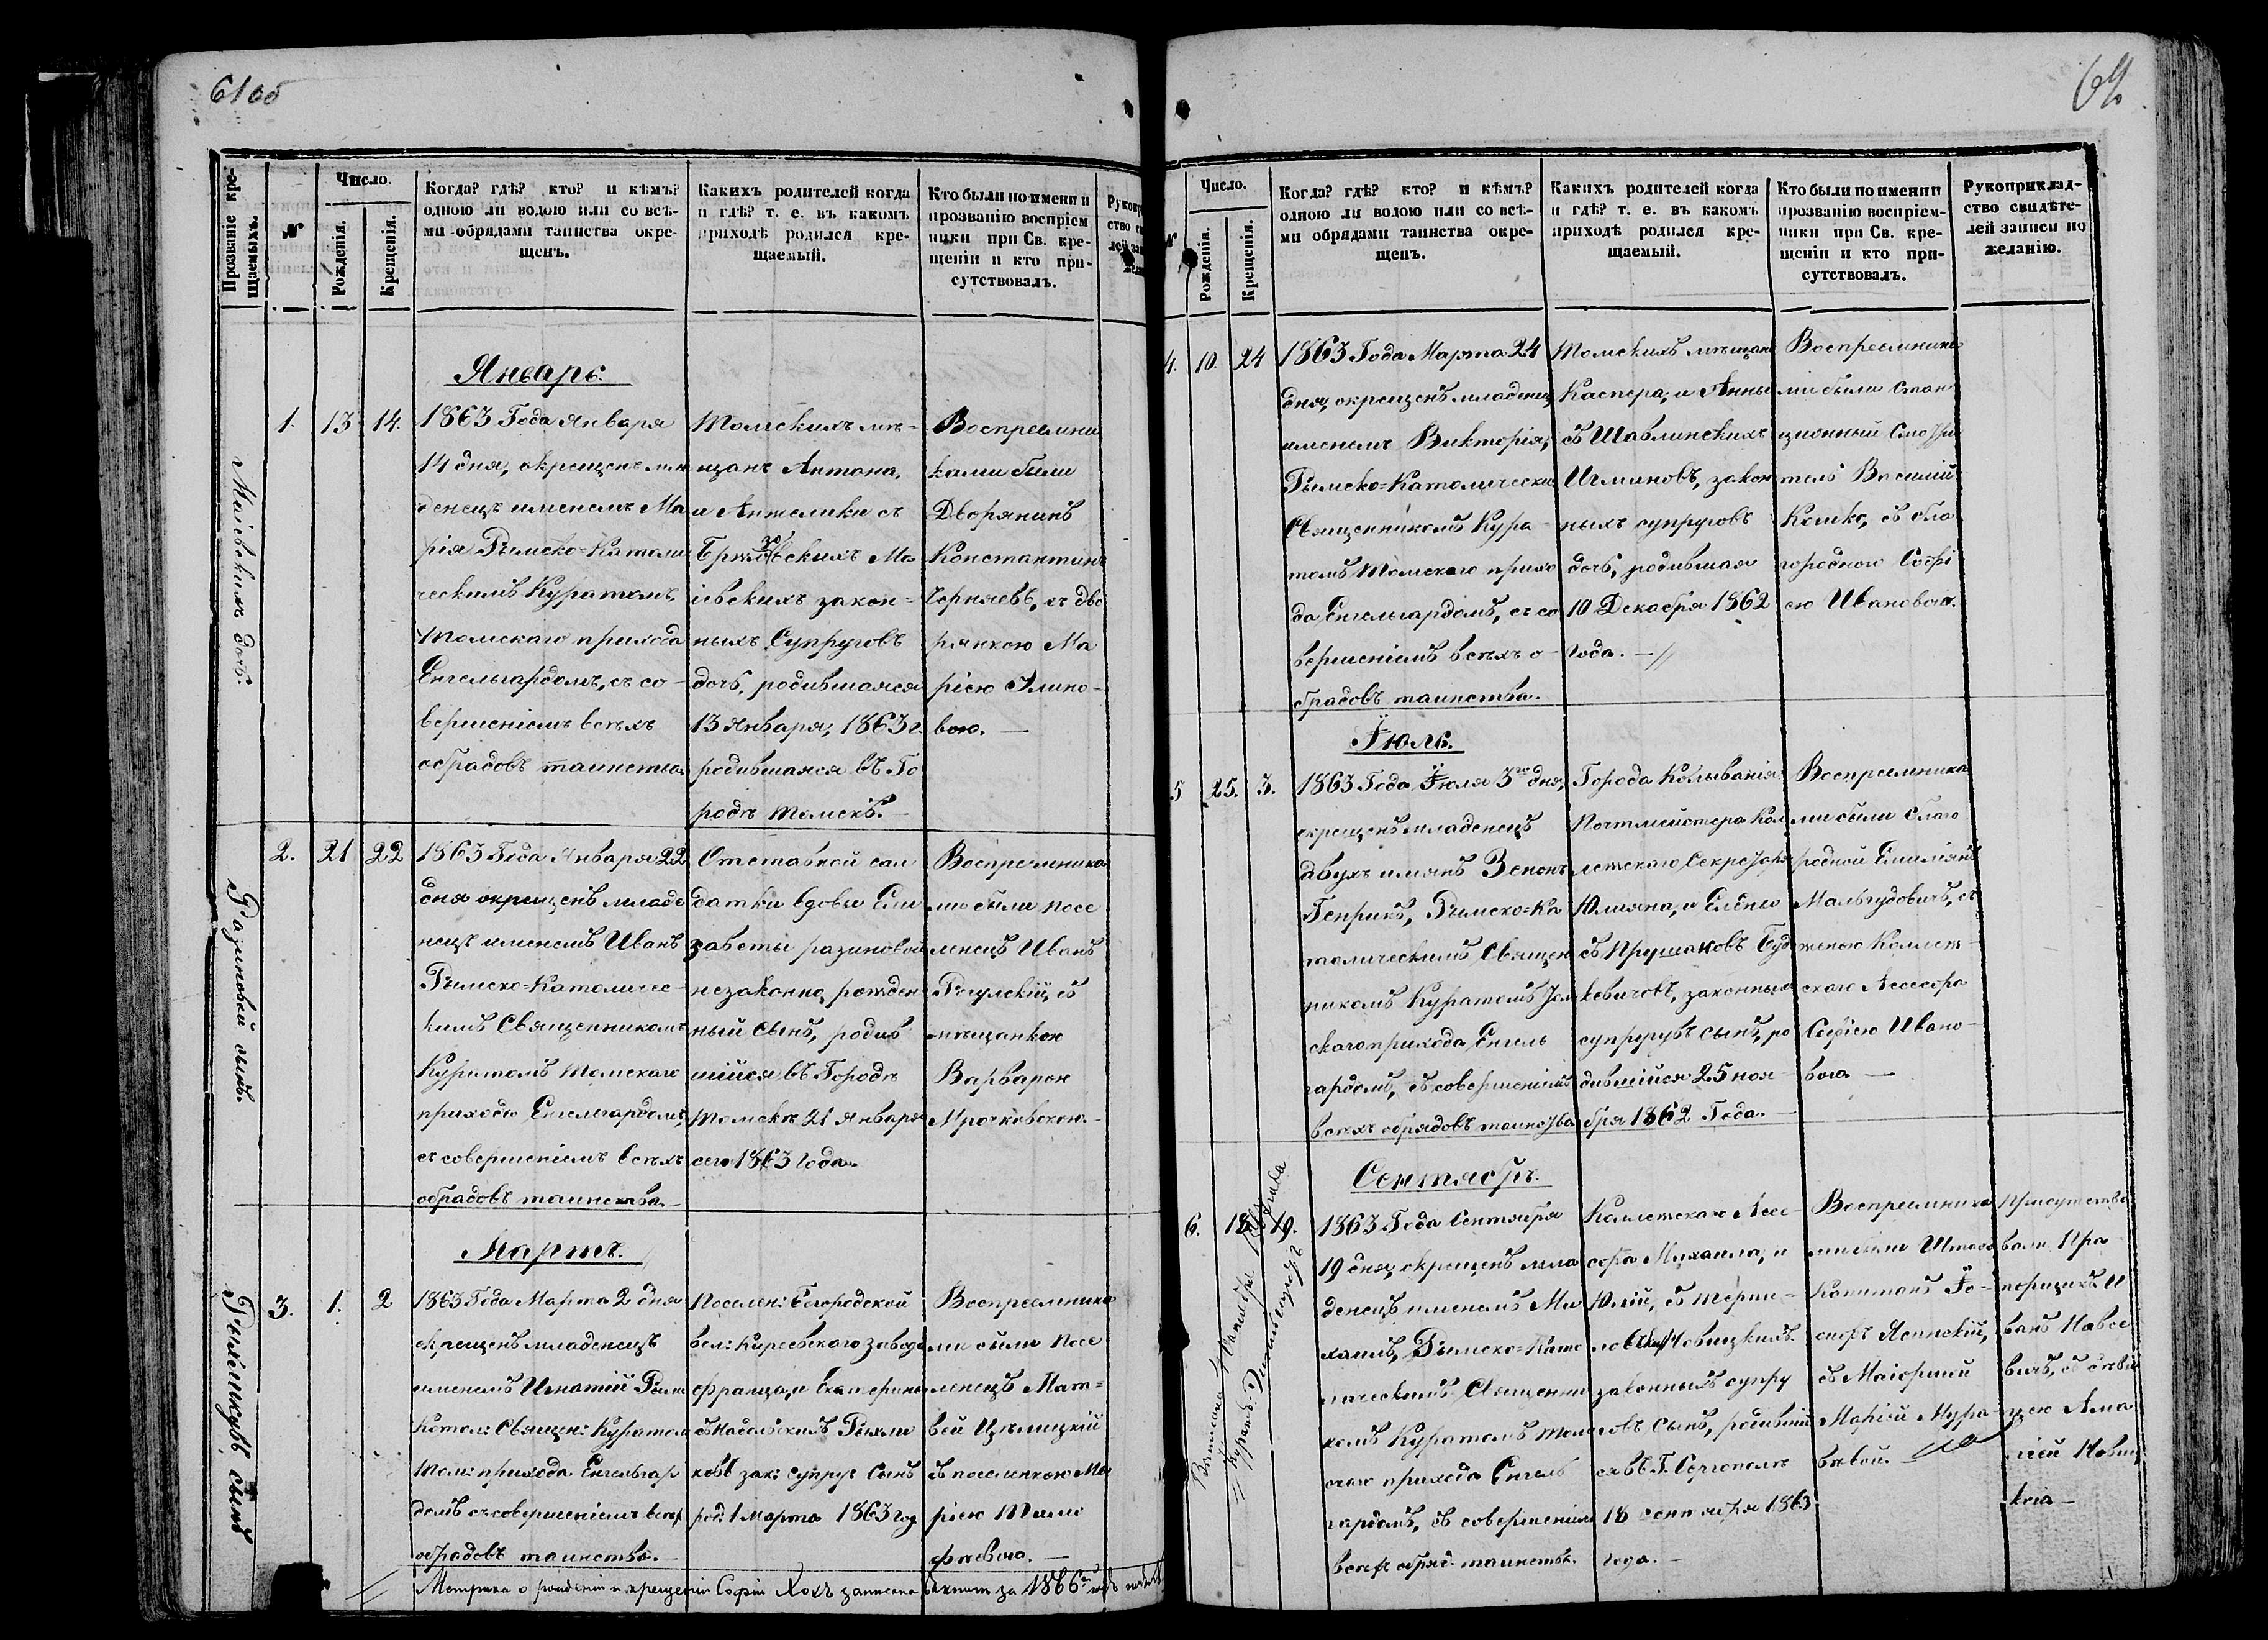 61 об
Прозваніе кре-
щаемыхъ.
№
Число.
Рожденія.
Крещенія.
Когда? гдѣ? кто? и кѣмъ?
одною ли водою или со всѣ-
ми обрядами таинства окре-
щенъ.
Какихъ родителей когда
и гдѣ? т. е. въ какомъ
приходѣ родился кре-
щаемый.
Кто были по имени и
прозванію воспріем
ники при Св. кре-
щеніи и кто при-
сутствовалъ.
Январь.
Маіевскихъ дочь.
1.
13
14.
1863 Года Января
14 дня, окрещенъ мла
денецъ именемъ Ма
рія Римско-Католи
ческимъ Куратомъ
Томскаго прихода
Енгельгардомъ, съ со-
вершеніемъ всѣхъ
обрадовъ таинства
Томскихъ мѣ-
щанъ Антона,
и Анжелики съ
Маіевскихъ закон-
ныхъ Супруговъ
дочь, родившаяся
13 Января, 1863 г.
родившаяся въ Го
родѣ Томскѣ.
Воспреемни
ками были
Дворянинъ
Константинъ
Черняевъ, съ дво
рянкою Ма
ріею
вою.
Разиновой сынъ.
2.
21
22
1863 Года Января 22
дня окрещенъ младе
нецъ именемъ Иванъ
Римско-Католичес-
кимъ Священникомъ
Куратомъ Томскаго
прихода Енгельгардомъ,
съ совершеніемъ всѣхъ
обрадовъ таинства.
Отставной сол
датки вдовы Ели
заветы разиновой
незаконно рожден
ный сынъ, родив
шійся въ Городѣ
Томскѣ 21 Января
сего 1863 Года.
Воспреемника
ми были посе
ленецъ Иванъ
съ
мѣщанкою
Варварою
Мрочковскою.
Мартъ.
сынъ
3.
1.
2
1863 Года Марта 2 дня
окрещенъ младенецъ
именемъ Игнатій Римс
Катол: Священ: Куратом
Том: прихода Енгельгар
домъ съ совершеніемъ всѣх
обрадовъ таинства.
Поселен: Богородской
вол: Киреевского завода
Франца, и Екатерины
ковъ зак: супруг Сынъ
род. 1 Марта 1863 год
Воспреемника
ми были посе
ленецъ Мат-
вей Цѣлицкій
съ поселенкою Ма
ріею Тимо
фѣевою.
Метрика о рожденіи и крещеніи Софіи Хохъ записана за 1866
№
Число.
Рожденія.
Крещенія.
Когда? гдѣ? кто? и кѣмъ?
одною ли водою или со всѣ-
ми обрядами таинства окре-
щенъ.
Какихъ родителей когда
и гдѣ? т. е. въ какомъ
приходѣ родился кре-
щаемый.
Кто были по имени и
прозванію воспріем-
ники при Св. кре-
щеніи и кто при-
сутствовалъ.
Рукоприклад-
ство свидѣте-
лей записи по
желанію.
4.
10.
24
1863 Года Марта 24
дня, окрещенъ младенец
именемъ Викторія,
Римско-Католически
Священникомъ Кура-
томъ Томскаго прихо
да Енгельгардомъ, съ со
вершеніемъ всѣхъ о-
брадовъ таинства.
Томскихъ мѣщанъ
Каспера, и Анны
съ Шавлинскихъ
закон
ныхъ супруговъ
дочь, родившая
10 Декабря 1862
Года.
Воспреемника
ми были Стан
ціонный Смотри
тель Василій
съ бла
городною Софі
ею Ивановою.
Іюль.
5
25.
3.
1863 Года Іюля 3го дня,
окрещенъ младенецъ
двухъ имянъ Зенонъ
Генрикъ, Римско-Ка
толическимъ Священ
никомъ Куратомъ Том
скаго прихода Енгель
гардомъ, съ совершеніемъ
всѣхъ обрядовъ таинства
Города Колыванія
Почтмейстера Кол
лежскаго Секретаря
Юліяна, и Елены
съ Прушаковъ Буд
кевичовъ, законныхъ
супруговъ сынъ, ро
дившійся 25 ноя-
бря 1862 Года.
Воспреемника
ми были благо
родной Емиліянъ
Мальгудовичъ, съ
женою Коллеж-
скаго Ассесора
Софіею Ивано-
вою
Сентябрь.
6.
18
19.
1863 Года Сентября
19 дня, окрещенъ мла
денецъ именемъ Ми
хаилъ, Римско-Като
лическимъ Священни
комъ Куратомъ Том
скаго прихода Енгель
гардомъ, съ совершеніем
всѣхъ обряд. таинств.
Коллежскаго Ассе-
сора Михаила, и
Юліи,
Новицкихъ
законныхъ супру
говъ Сынъ, родивший
ся въ Г. Сергополѣ
18 сентября 1863
года.
Воспреемника
ми были Штабс
Капитанъ Іо-
сифъ Ясинскій,
съ Маіоршей
Маріей Мура-
вьевой.
Присутство
вали Пра
порщикъ И
ванъ
вичъ, съ дѣви
цею Ама
ліей Новиц
кою